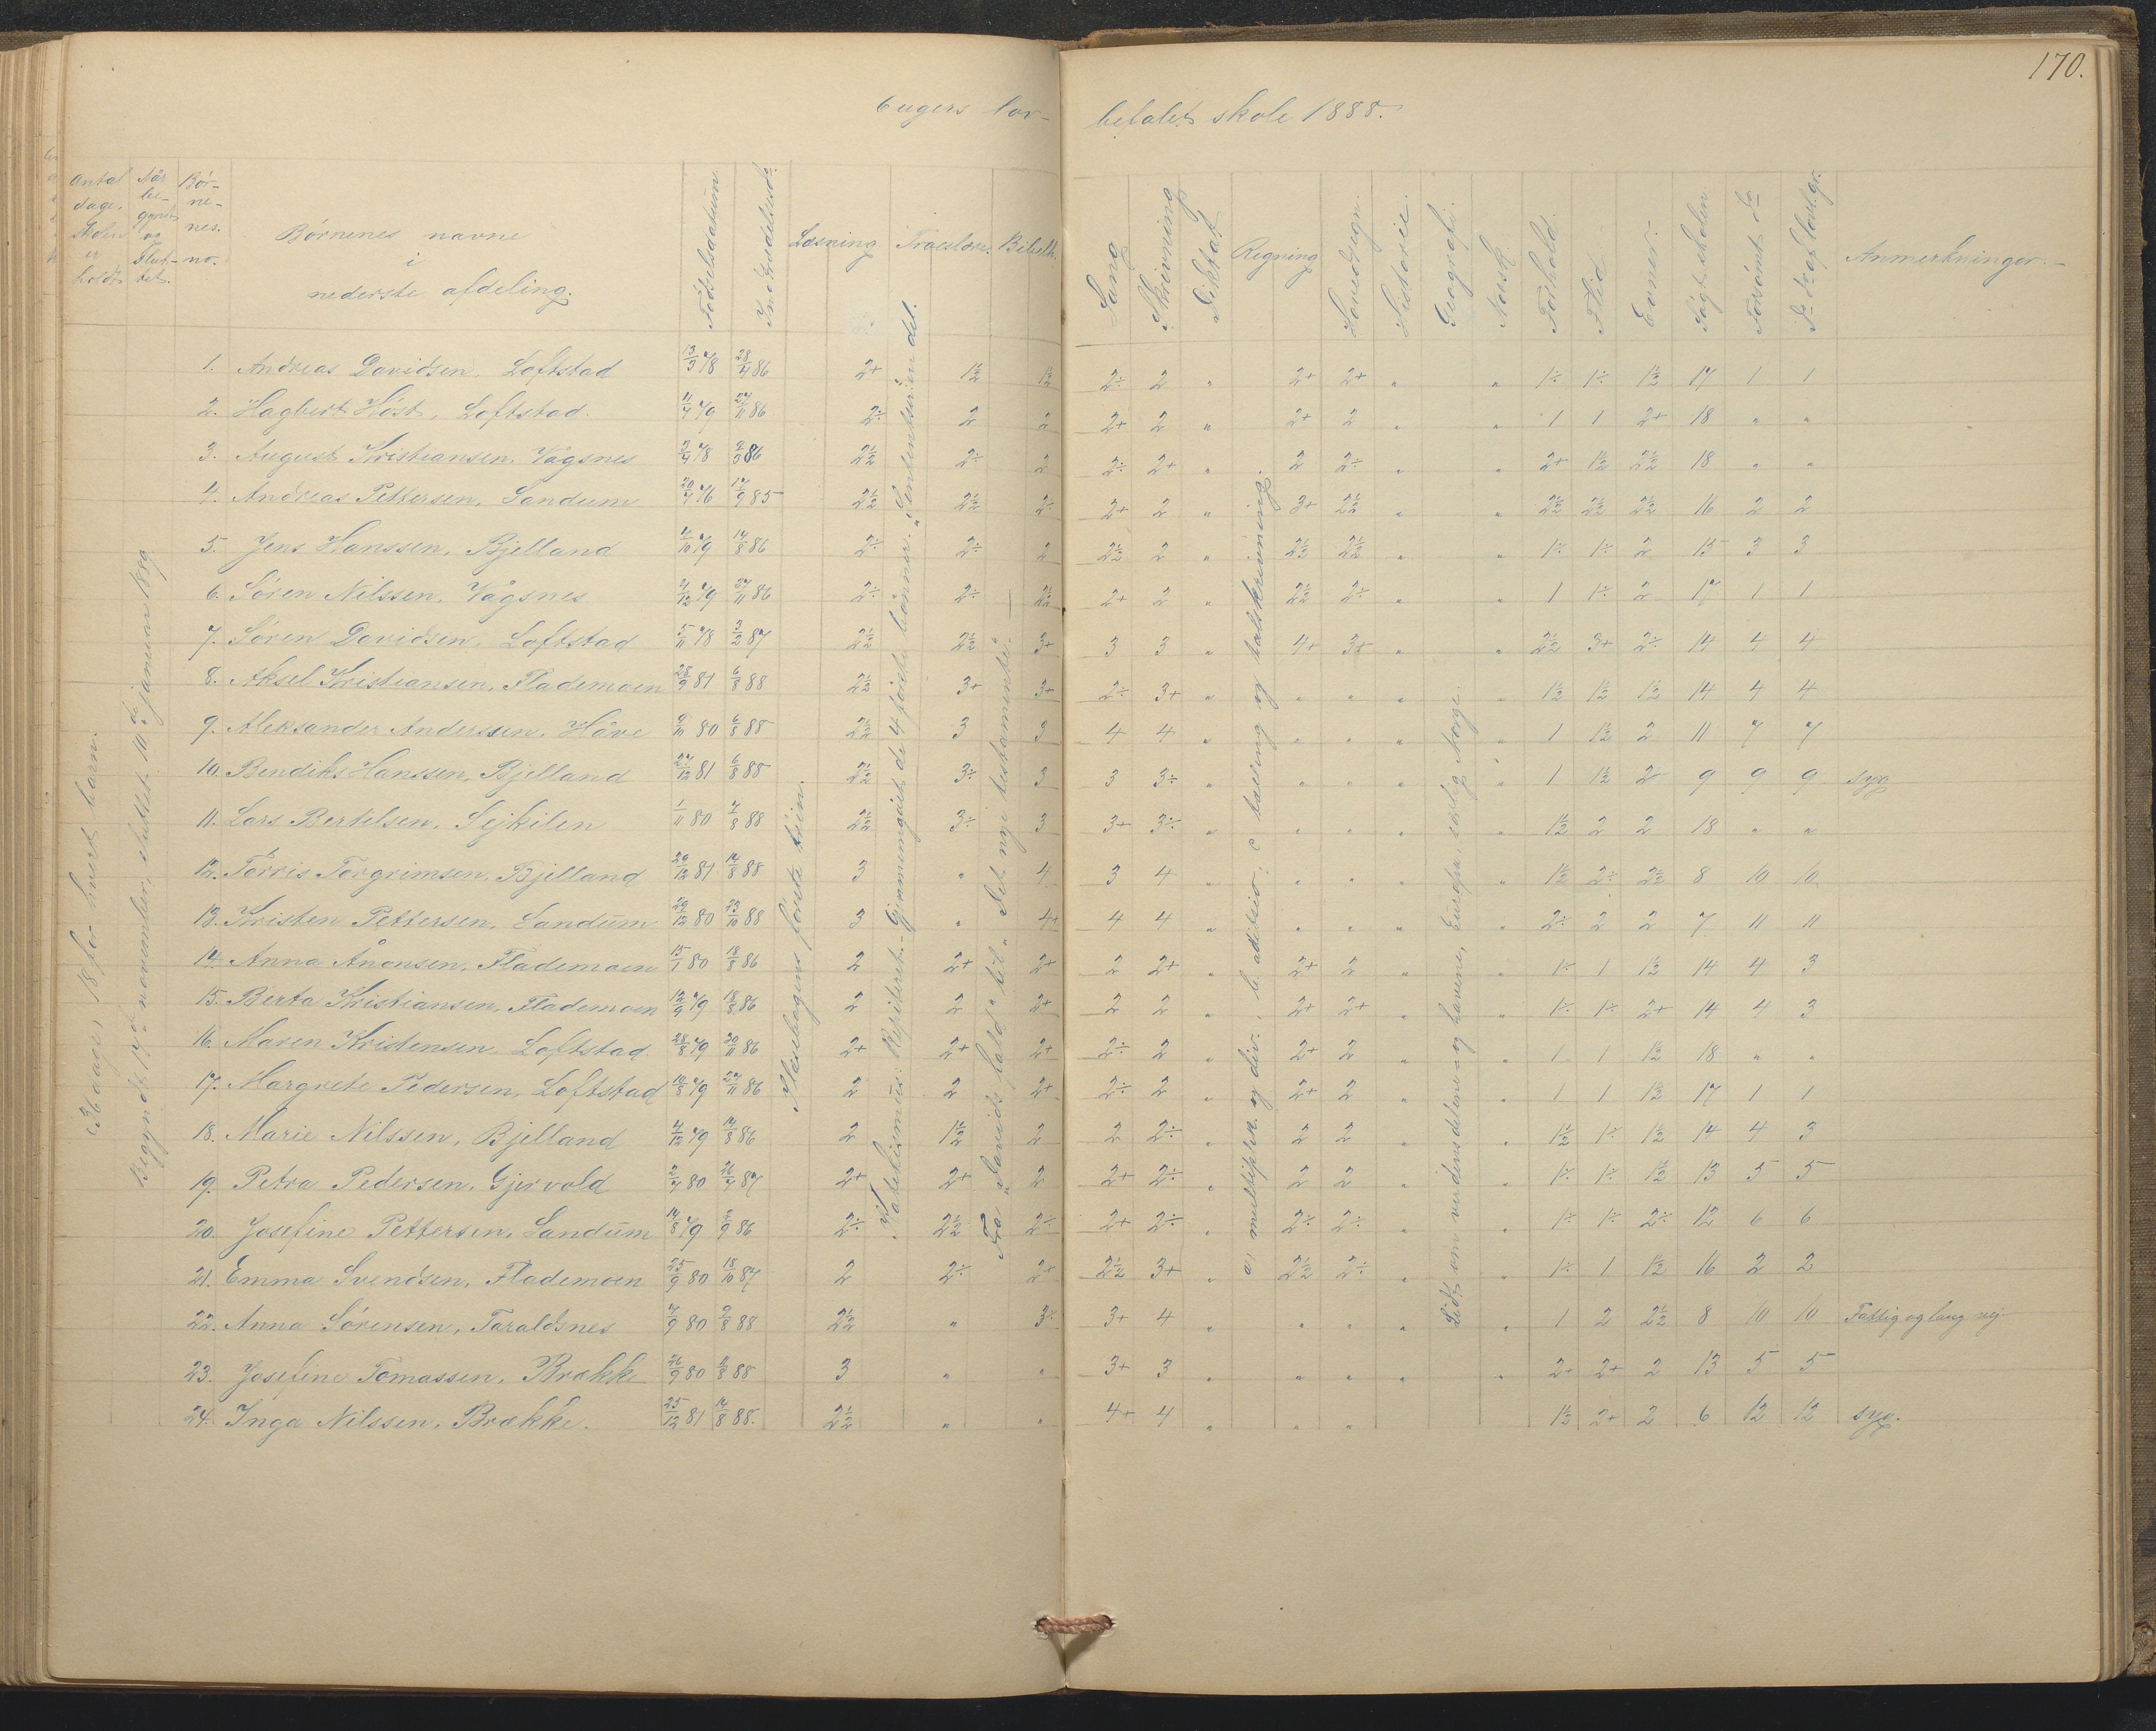 170.
6 ugers lov-
befalet skole 1888.
Antal dage, skolen er holdt
Når be-gyndt og slut-tet.
Bör-ne-nes. no.
Börnenes navne
i
nederste afdeling.
Födselsdatum
Læsning
Troeslære.
Bibelh.
Sang
Skrivning
Diktat
Regning
Hovedregn.
Historie.
Geografi.
Norsk
Forhold.
Flid.
Evner.
Sögt skolen.
Forsömt do
Do do af lovl. gr.
Anmerkninger.
36 dage, 18 for hvert barn.
Begyndt 17de november, sluttet 10de januar 1889.
Læsebogens förste trin.
Katekismus: Repiteret. Gjennemgået de 4 förste bönner. "Sententserien" del.
Fra "Davids fald" til "Det nye testamente".
a) multiplka. og div., b. aditsio: c tælling og talskrivning.
Lidt om verdensdelene og havene, Europa, særlig Norge.
1. Andreas Davidsen, Loftstad 13/3 78 28/4 86 2+ 1½ 1½ 2÷ 2 " 2+ 2+ " " 1÷ 1÷ 1½ 17 1 1
2. Hagbert Höst, Loftstad. 11/4 79 27/11 86 2÷ 2 2 2+ 2 " 2+ 2 " " 1 1 2+ 18 " "
3. August Kristiansen. Vågsnes 2/4 78 2/9 86 2½ 2÷ 2 2÷ 2+ " 2 2÷ " " 2+ 1½ 2½ 18 " "
4. Andreas Pettersen, Sandum 20/4 76 17/9 85 2½ 2½ 2÷ 2+ 2 " 3+ 2½ " " 2½ 2½ 2½ 16 2 2
5. Jens Hanssen, Bjelland 4/10 79 14/8 86 2÷ 2÷ 2 2½ 2 " 2½ 2½ " " 1÷ 1÷ 2 15 3 3
6. Sören Nilssen, Vågsnes 2/12 79 27/11 86 2÷ 2÷ 2½ 2+ 2 " 2½ 2÷ " " 1 1÷ 2 17 1 1
7. Sören Davidsen, Loftstad 5/11 78 3/2 87 2½ 2½ 3+ 3 3 " 4+ 3+ " " 2½ 3+ 2÷ 14 4 4
8. Aksel Kristiansen, Flademoen 28/9 81 6/8 88 2½ 3+ 3+ 2÷ 3+ " " " " " 1½ 1½ 1½ 14 4 4
9. Aleksander Anderssen. Håve 9/11 80 6/8 88 2½ 3 3 4 4 " " " " " 1 1½ 2 11 7 7
10. Bendiks Hanssen, Bjelland 27/12 81 6/8 88 2½ 3÷ 3 3 3÷ " " " " " 1 1½ 2 9 9 9 syg
11. Lars Bertelsen, Sejkilen 1/11 80 7/8 88 2½ 3÷ 3 3+ 3÷ " " " " " 1½ 2 2 18 " "
12. Torris Torgrimsen, Bjelland 29/12 81 14/8 88 3 " 4 3 4 " " " " " 1½ 2÷ 2½ 8 10 10
13. Kristen Pettersen, Sandum 29/12 80 23/10 88 3 " 4+ 4 4 " " " " " 2÷ 2 2 7 11 11
14. Anna Ånonsen, Flademoen 15/1 80 18/8 86 2 2+ 2+ 2 2+ " 2+ 2 " " 1÷ 1 1½ 14 4 3
15. Berta Kristiansen, Flademoen 12/9 79 18/8 86 2 2 2+ 2 2 " 2+ 2+ " " 1÷ 1÷ 2+ 14 4 3
16. Maren Kristensen, Loftstad. 28/8 79 20/11 86 2+ 2+ 2+ 2÷ 2 " 2+ 2 " " 1 1 1½ 18 " "
17. Margrete Pedersen, Loftstad 10/8 79 27/11 86 2 2 2+ 2÷ 2 " 2+ 2 " " 1 1 1½ 17 1 1
18. Marie Nilssen, Bjelland 4/12 79 14/8 86 2 1½ 2 2 2÷ " 2 2 " " 1½ 1÷ 1½ 14 4 3
19. Petra Pedersen, Gjervold 2/7 80 26/7 87 2+ 2+ 2 2+ 2÷ " 2 2 " " 1÷ 1÷ 1½ 13 5 5
20. Josefine Pettersen, Sandum 14/8 79 2/9 86 2÷ 2½ 2÷ 2+ 2÷ " 2÷ 2÷ " " 1÷ 1÷ 2÷ 12 6 6
21. Emma Svendsen, Flademoen 25/9 80 18/10 87 2 2÷ 2+ 2½ 3+ " 2½ 2÷ " " 1÷ 1 1½ 16 2 2
22. Anna Sörensen, Taraldsnes 7/9 80 9/8 88 2½ " 3÷ 3+ 4 " " " " " 1 2 2½ 8 10 10 Fattig og lang vej
23. Josefine Tomassen, Brække 26/9 80 11/8 88 3 " " 3+ 3 " " " " " 2÷ 2+ 2 13 5 5
24. Inga Nilssen, Brække. 25/12 81 14/8 88. 2½ " " 4+ 4 " " " 1½ 2+ 2 6 12 12 syg.